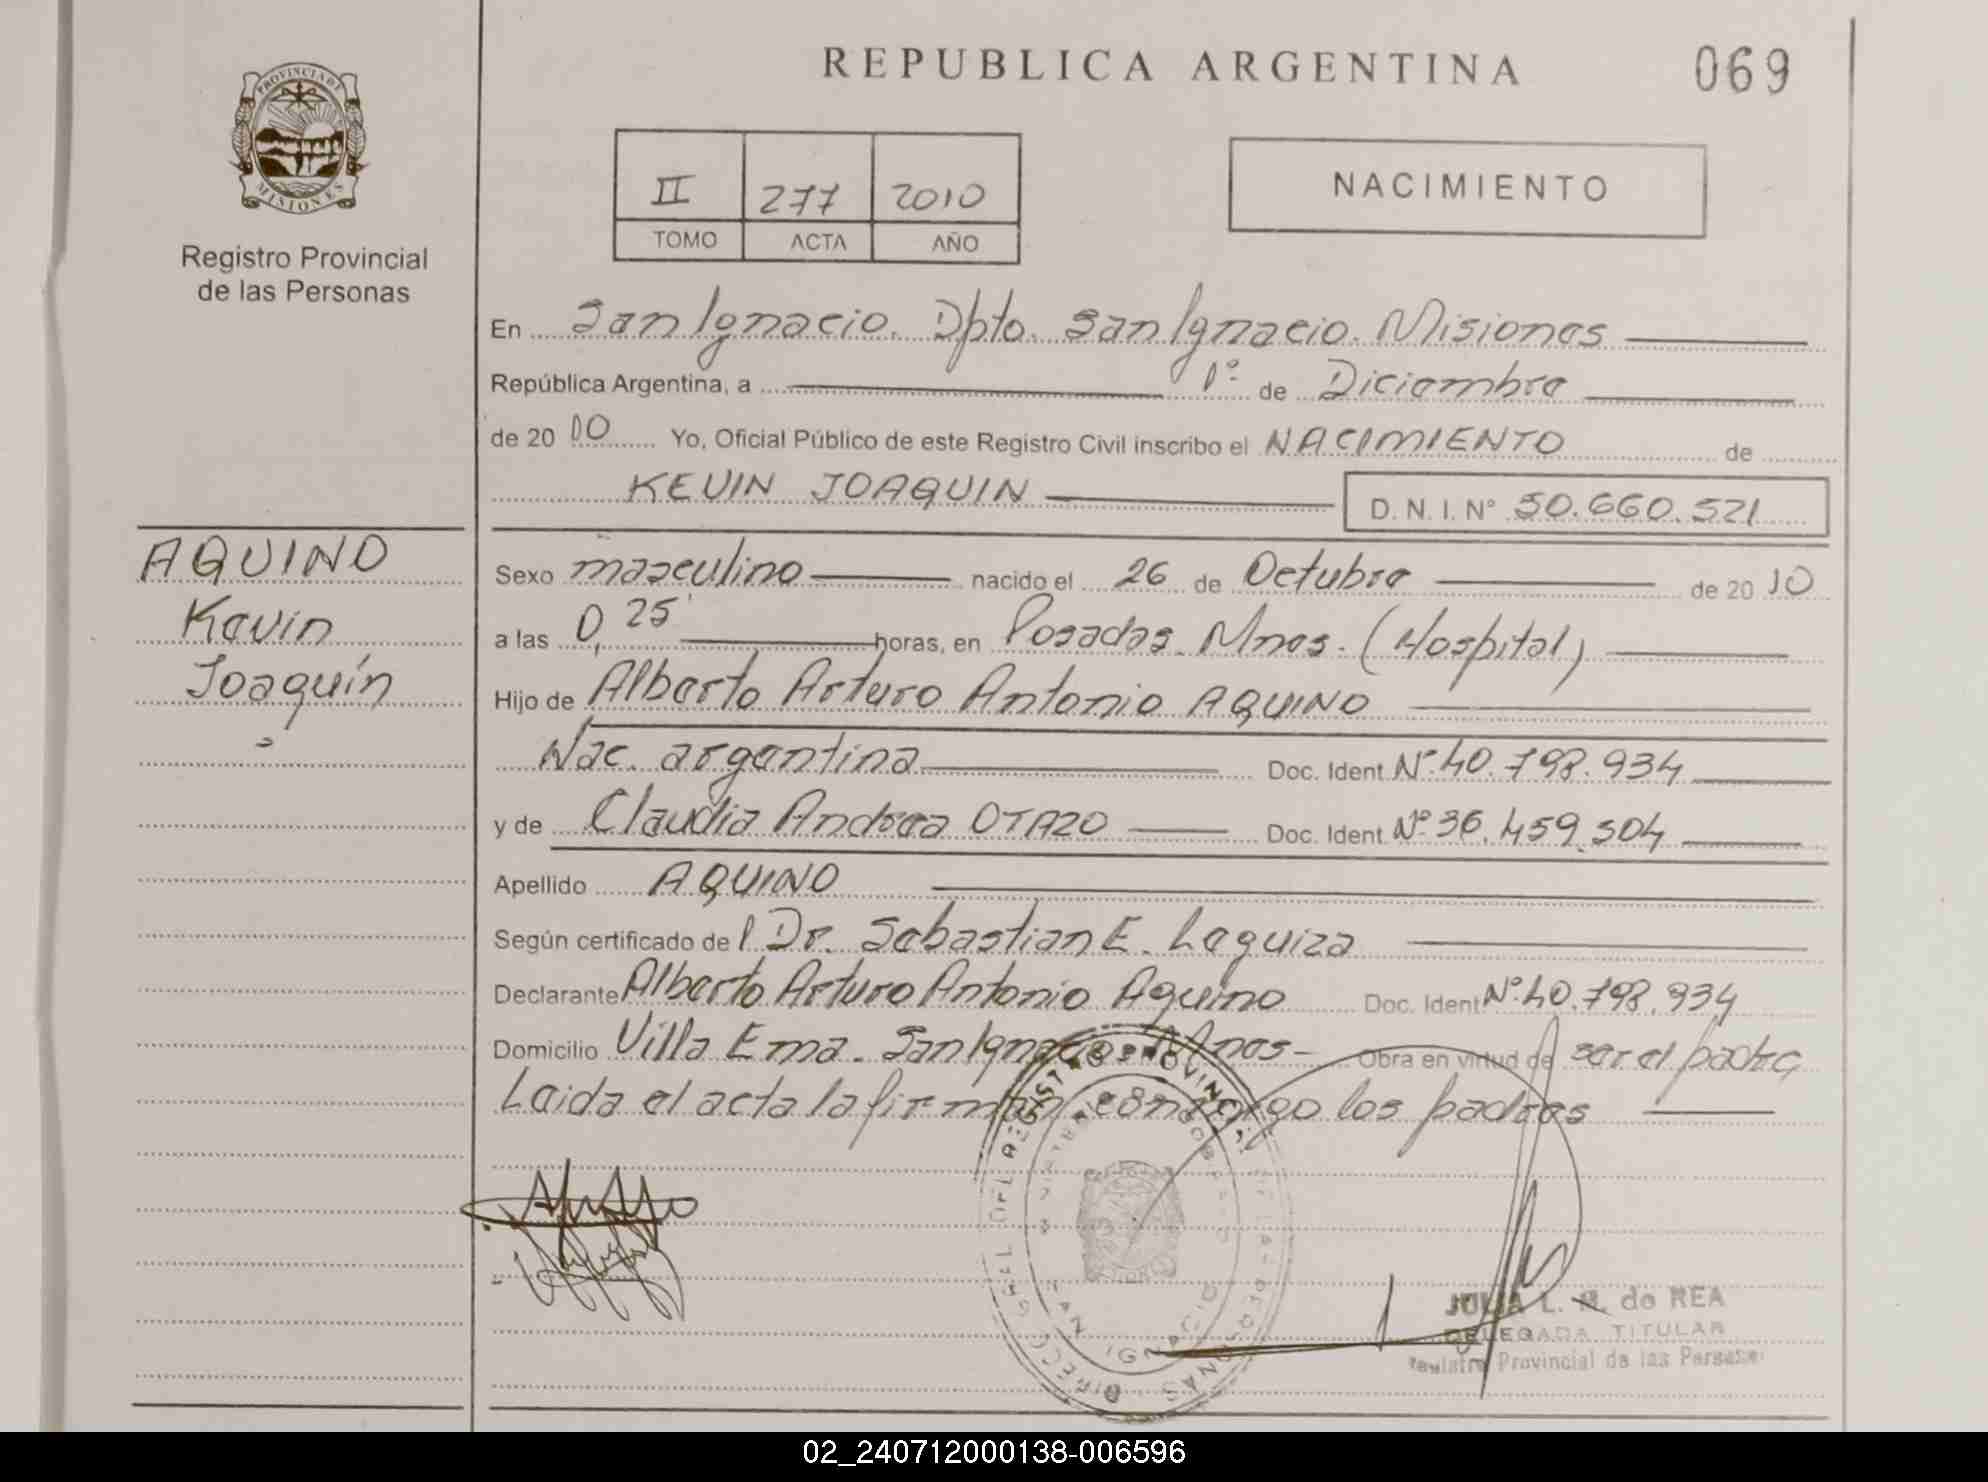 PROVINCIA DE
MISIONES
Registro Provincial
de las Personas
REPUBLICA ARGENTINA
069
II 277 2010
TOMO ACTA AÑO
NACIMIENTO
En San Ignacio. Dpto. San Ignacio. Misiones
República Argentina, a 1º de Diciembre
de 2010 Yo, Oficial Público de este Registro Civil inscribo el NACIMIENTO de
KEVIN JOAQUIN
D. N. I. Nº 50.660.521
AQUINO
Kevin
Joaquín
Sexo masculino nacido el 26 de Octubre de 2010
a las 0,25 horas, en Posadas. Mnes. (Hospital)
Hijo de Alberto Arturo Antonio AQUINO
Nac. argentina Doc. Ident. Nº 40.798.934
y de Claudia Andrea OTAZO Doc. Ident. Nº 36.459.504
Apellido AQUINO
Según certificado del Dr. Sebastian E. Leguiza
Declarante Alberto Arturo Antonio Aquino Doc. Ident. Nº 40.798.934
Domicilio Villa Ema. San Ignacio Mnes- Obra en virtud de ser el padre
Leida el acta la firman conmigo los padres
JULIA L. R. de REA
DELEGADA TITULAR
Registro Provincial de las Personas
02_240712000138-006596